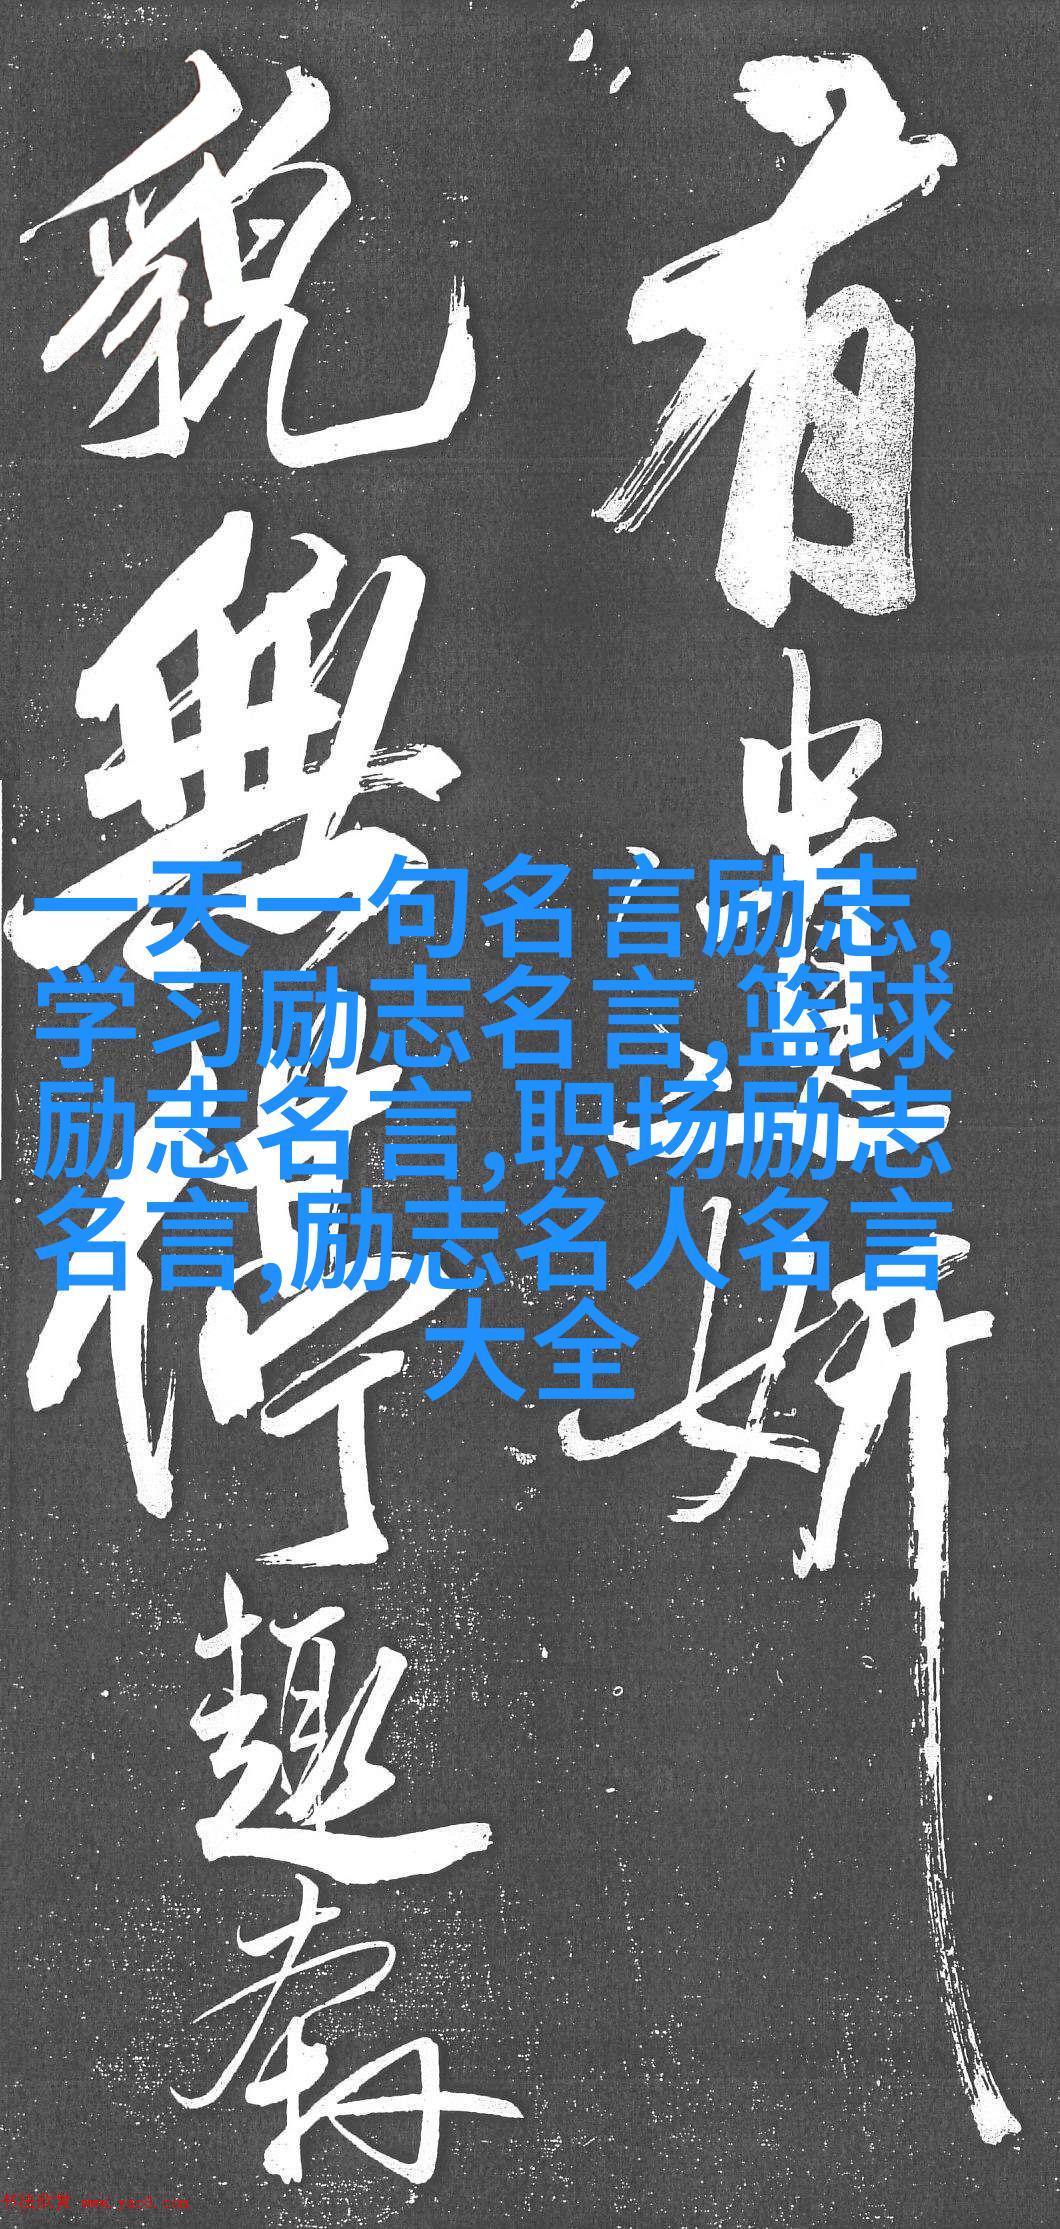 有遺妍
貌無停趣
一天一句名言励志,
学习励志名言,篮球
励志名言,职场励志
名言,励志名人名言
大全
书法欣赏 www.yac8.com